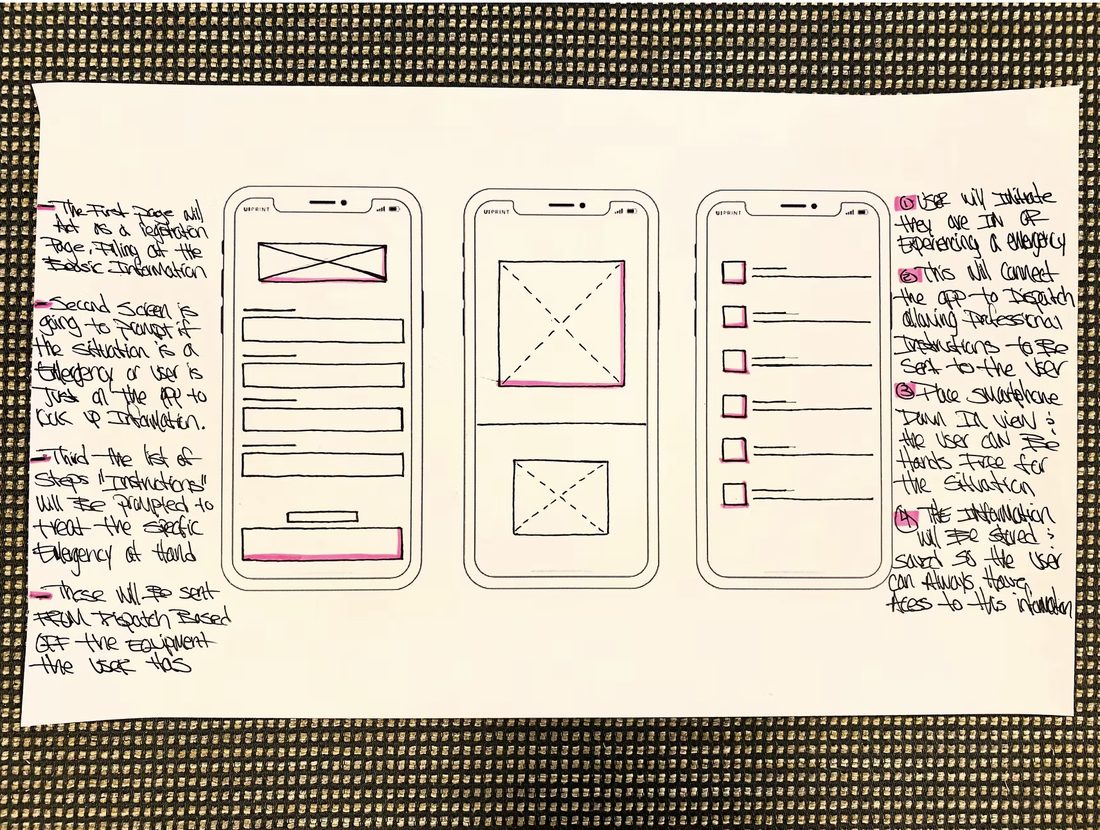 - The First page will
Act as a registration
Page, Filling out the
Basic Information
- Second Screen is
going to prompt if
the situation is a
Emergency or user is
Just on the app to
look up Information.
- Third the list of
Steps "Instructions"
will Be prompted to
treat the specific
Emergency at Hand
- These will Be sent
FROM Dispatch Based
OFF the EQUIPMENT
the USER HAS
UIPRINT
UIPRINT
UIPRINT
① USER will Initiate
they are IN OR
Experiencing a emergency
② This will connect
the app to Dispatch
allowing Professional
Instructions to Be
sent to the User
③ Place smartphone
Down In view &
the user can Be
Hands Free for
the Situation
④ The Information
will Be stored &
saved so the user
can Always Have
Acess to this information